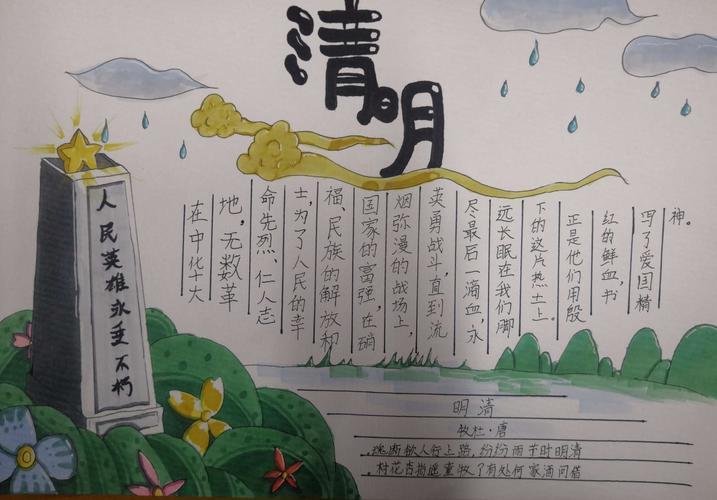 清明
人民英雄永垂不朽
在中华大
地,无数革
命先烈、仁人志
士,为了人民的幸
福、民族的解放和
国家的富强,在硝
烟弥漫的战场上,
英勇战斗,直到流
尽最后一滴血,永
远长眠在我们脚
下的这片热土上。
正是他们用殷
红的鲜血,书
写了爱国精
神。
明清
牧杜·唐
魂断欲人行上路,纷纷雨节时明清
村花杏指遥童牧 有处何家酒问借